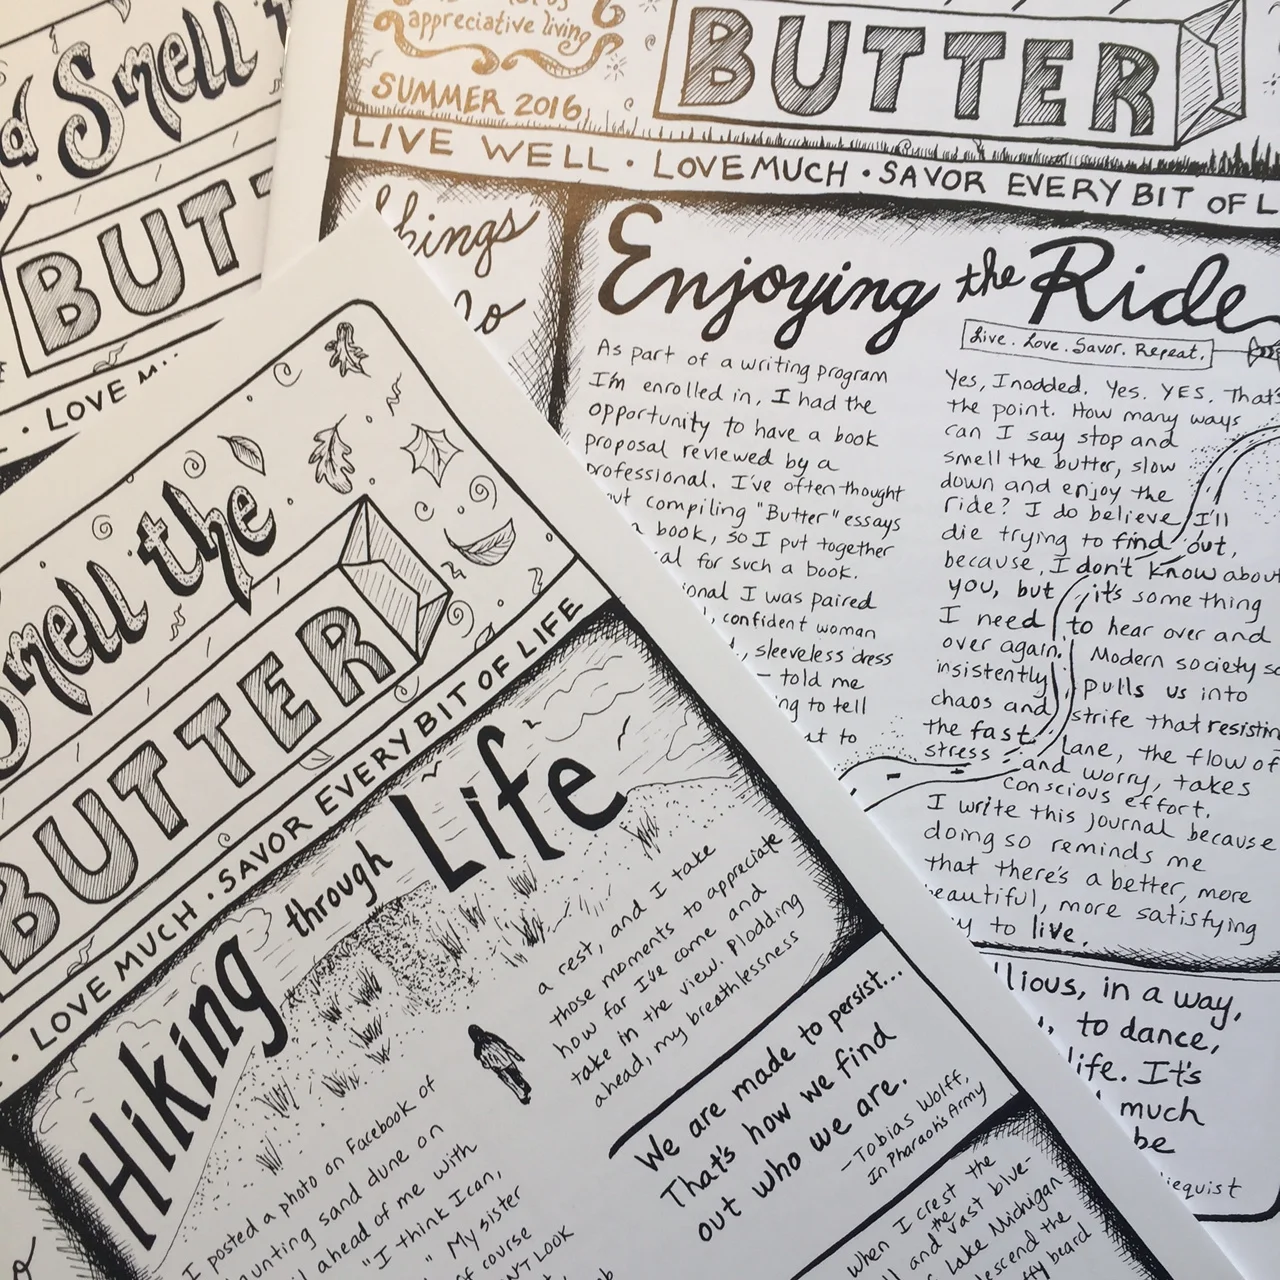 d Smell
BUTT
LOVE M
appreciative living
SUMMER 2016
BUTTER
LIVE WELL · LOVE MUCH · SAVOR EVERY BIT OF L
Things
Enjoying the Ride
Live. Love. Savor. Repeat.
As part of a writing program
I'm enrolled in, I had the
opportunity to have a book
proposal reviewed by a
professional. I've often thought
compiling "Butter" essays
book, so I put together
for such a book.
I was paired
confident woman
sleeveless dress
– told me
to tell
to
Yes, I nodded. Yes. YES. That's
the point. How many ways
can I say stop and
smell the butter, slow
down and enjoy the
ride? I do believe I'll
die trying to find out,
because, I don't know about
you, but it's something
I need to hear over and
over again. Modern society so
insistently pulls us into
chaos and strife that resistin
the fast lane, the flow of
stress and worry, takes
conscious effort.
I write this journal because
doing so reminds me
that there's a better, more
beautiful, more satisfying
to live.
in a way,
to dance,
life. It's
much
be
Smell the
BUTTER
LOVE MUCH · SAVOR EVERY BIT OF LIFE
Hiking through Life
I posted a photo on Facebook of
sand dune on
ahead of me with
"I think I can,
" My sister
course
LOOK
a rest, and I take
those moments to appreciate
how far I've come and
take in the view. Plodding
ahead, my breathlessness
We are made to persist...
That's how we find
out who we are.
–Tobias Wolff,
In Pharaoh's Army
When I crest the
and the vast blue-
Lake Michigan
descend the
beard